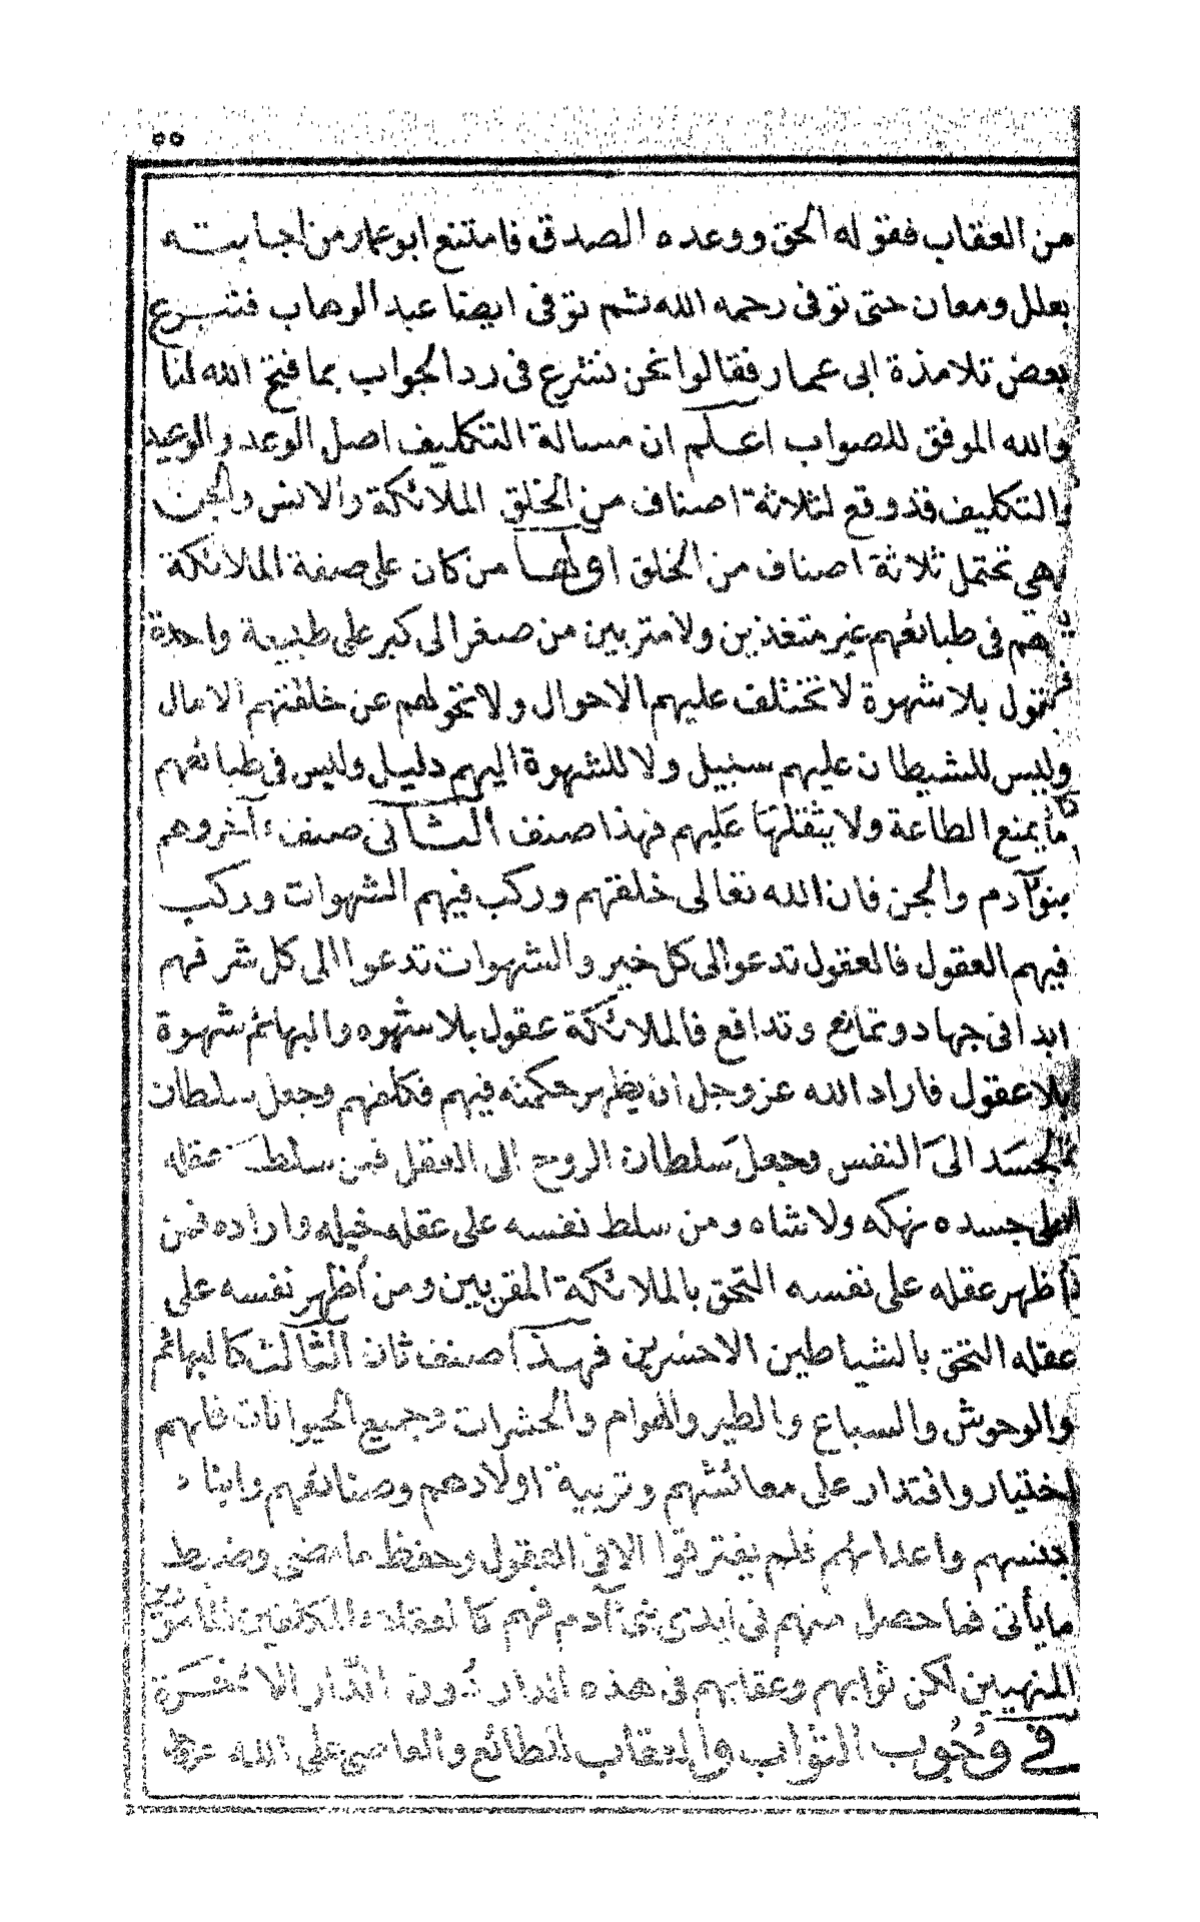 ٥٥
من العقاب فقوله الحق ووعده الصدق فامتنع ابوعمار من اجابته
بعلل ومعان حتى توفى رحمه الله ثم توفى ايضا عبد الوهاب فتسرع
بعض تلامذة ابى عمار فقالوا نحن نشرع فى رد الجواب بما فتح الله لنا
والله الموفق للصواب اعلم ان مسالة التكليف اصل الوعد والوعيد
والتكليف قد وقع لثلاثة اصناف من الخلق الملائكة والانس والجن
وهى تحتمل ثلاثة اصناف من الخلق اولها من كان على صفة الملائكة
هم فى طبائعهم غير متغذين ولا متربيين من صغر الى كبر على طبيعة واحدة
بلا شهوة لا تختلف عليهم الاحوال ولا تحولهم عن خلقتهم الامال
وليس للشيطان عليهم سبيل ولا للشهوة اليهم دليل وليس فى طبائعهم
ما يمنع الطاعة ولا يثقلها عليهم فهذا صنف الثانى صنف آخر وهم
بنو آدم والجن فان الله تعالى خلقتهم وركب فيهم الشهوات وركب
فيهم العقول فالعقول تدعوا الى كل خير والشهوات تدعوا الى كل شر فهم
ابدا فى جهاد وتمانع وتدافع فالملائكة عقول بلا شهوه والبهائم شهوة
بلا عقول فاراد الله عز وجل ان يظهر حكمته فيهم فكلفهم وجعل سلطان
الجسد الى النفس وجعل سلطان الروح الى العقل فمن سلط عقله
على جسده نهكه ولاشاه ومن سلط نفسه على عقله خيله واراده فمن
اظهر عقله على نفسه التحق بالملائكة المقربين ومن أظهر نفسه على
عقله التحق بالشياطين الاخسرين فهذا صنف ثان الثالث كالبهائم
والوحوش والسباع والطير والهوام والحشرات وجميع الحيوانات فلهم
اختيار واقتدار على معائشهم وتربية اولادهم وصنائعهم وابناء
جنسهم واعدائهم فلم يفترقوا الا فى العقول وحفظ ما مضى وضبط
ما يأتى فما حصل منهم فى ايدى بنى آدم فهم كالعقلاء المكلفين المأمورين
المنهيين لكن ثوابهم وعقابهم فى هذه الدار دون الدار الاخرة
فى وجوب الثواب والعقاب للطائع والعاصى على الله